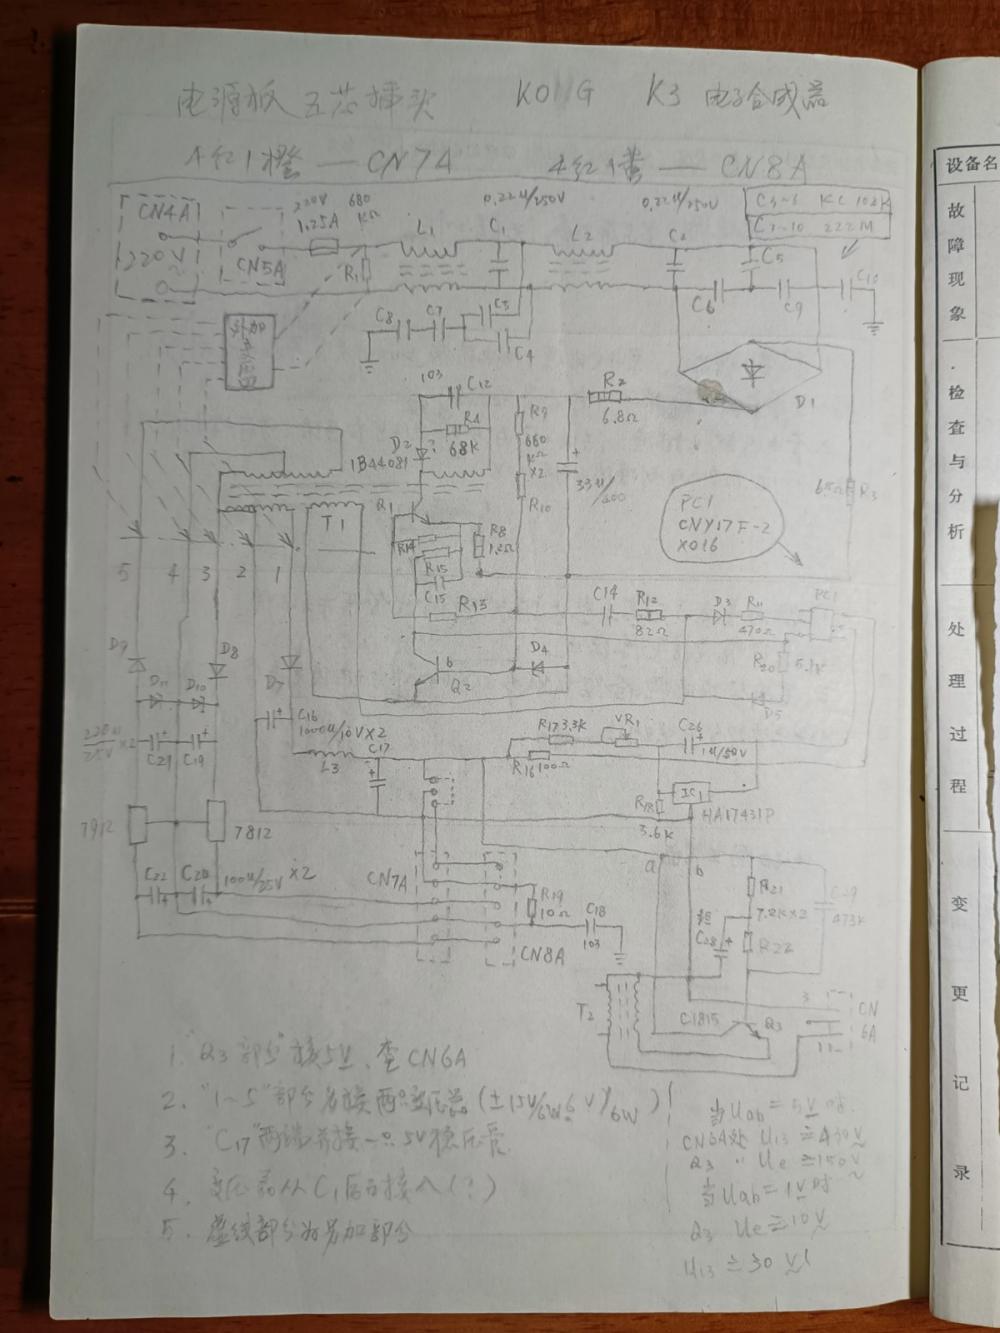 电源板 五芯插头 KORG K3 电子合成器
4红1橙 — CN7A 4红1黄 — CN8A
CN4A
220V
CN5A
220V
1.25A
680
KΩ
R1
L1
0.22u/250V
C1
L2
0.22u/250V
C2
C3~6 KC 102K
C7~10 222M
C5
C6
C9
C10
C8
C7
C3
C4
外加
变压器
103
C12
R4
68K
D2
1B44081
R9
680
KΩ
×2
R10
33u/400
R2
6.8Ω
D1
R3
PC1
CNY17F-2
X016
T1
Q1
R14
R15
C15
R8
1.2Ω
R13
5 4 3 2 1
C14
R12
82Ω
D3
R11
470Ω
PC1
R20
5.1K
D5
D4
Q2
b
D9
D8
D11
D10
D7
C16
1000u/10V×2
C17
L3
220u/25V×2
C21
C19
R17 3.3K
VR1
R16 100Ω
C26
1u/50V
IC1
HA17431P
R18
3.6K
7912
7812
C22
C20
100u/25V ×2
CN7A
CN8A
R19
10Ω
C18
103
a
b
R21
7.2K×2
R22
C29
473K
C28
T2
C1815
Q3
3
1
CN
6A
1. "Q3部分"接5V、查CN6A
2. "1~5"部分另接两只变压器(±15V/6W 6V/6W)
3. "C17"两端并接一只5V稳压管
4. 变压器从C1后方接入(?)
5. 虚线部分为另加部分
当Uab=5V时
CN6A处 U13≃430V
Q3 〃 Ue≃150V
当Uab=1V时
Q3 Ue≃10V
U13≃30V
设备名
故障现象
检查与分析
处理过程
变更记录